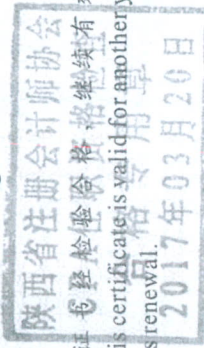 陕西省注册会计师协会
证书经检验合格,继续有
is certificate is valid for another y
s renewal.
格专用章
2017年03月20日